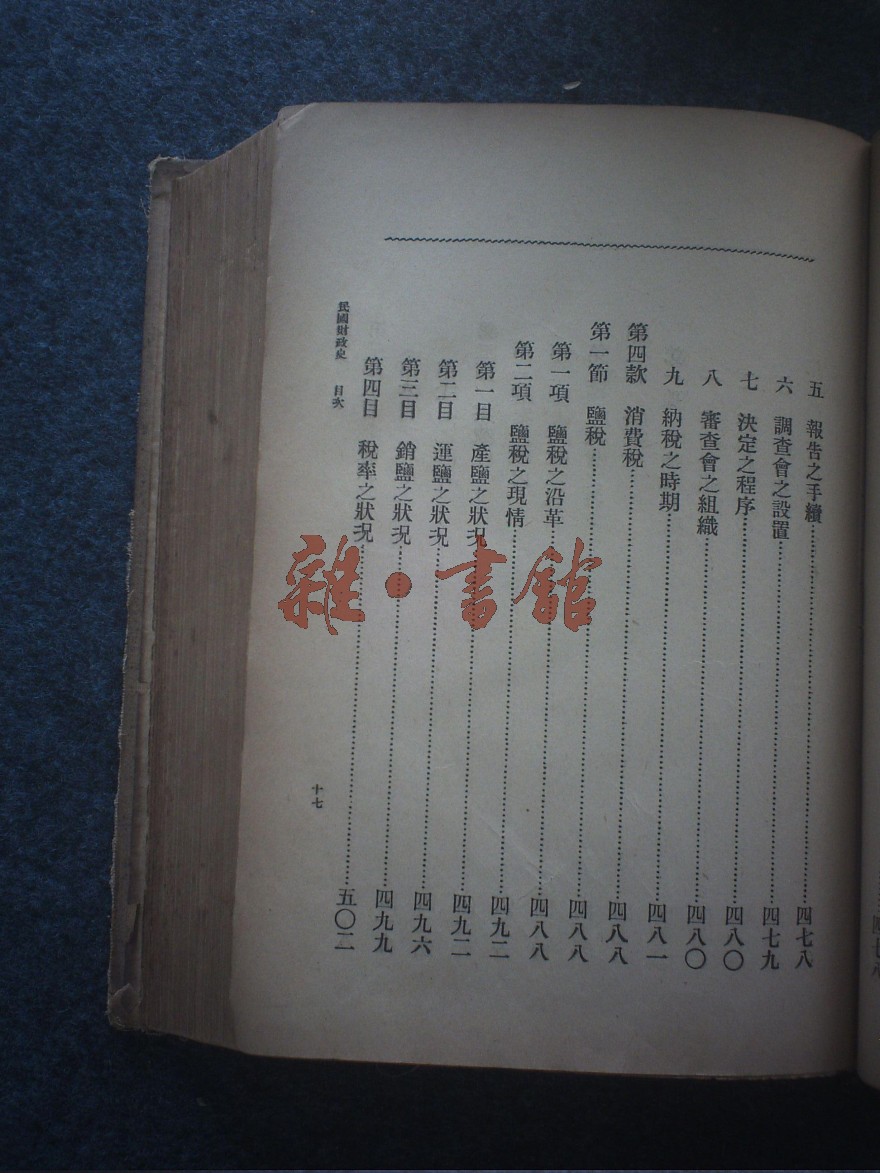 五　報告之手續……四七八
六　調查會之設置……四七九
七　決定之程序……四八〇
八　審查會之組織……四八〇
九　納稅之時期……四八一
第四款　消費稅……四八八
第一節　鹽稅……四八八
第一項　鹽稅之沿革……四八八
第二項　鹽稅之現情……四九二
第一目　產鹽之狀况……四九二
第二目　運鹽之狀况……四九六
第三目　銷鹽之狀况……四九九
第四目　稅率之狀况……五〇二
民國財政史　目次
十七
雜·書館